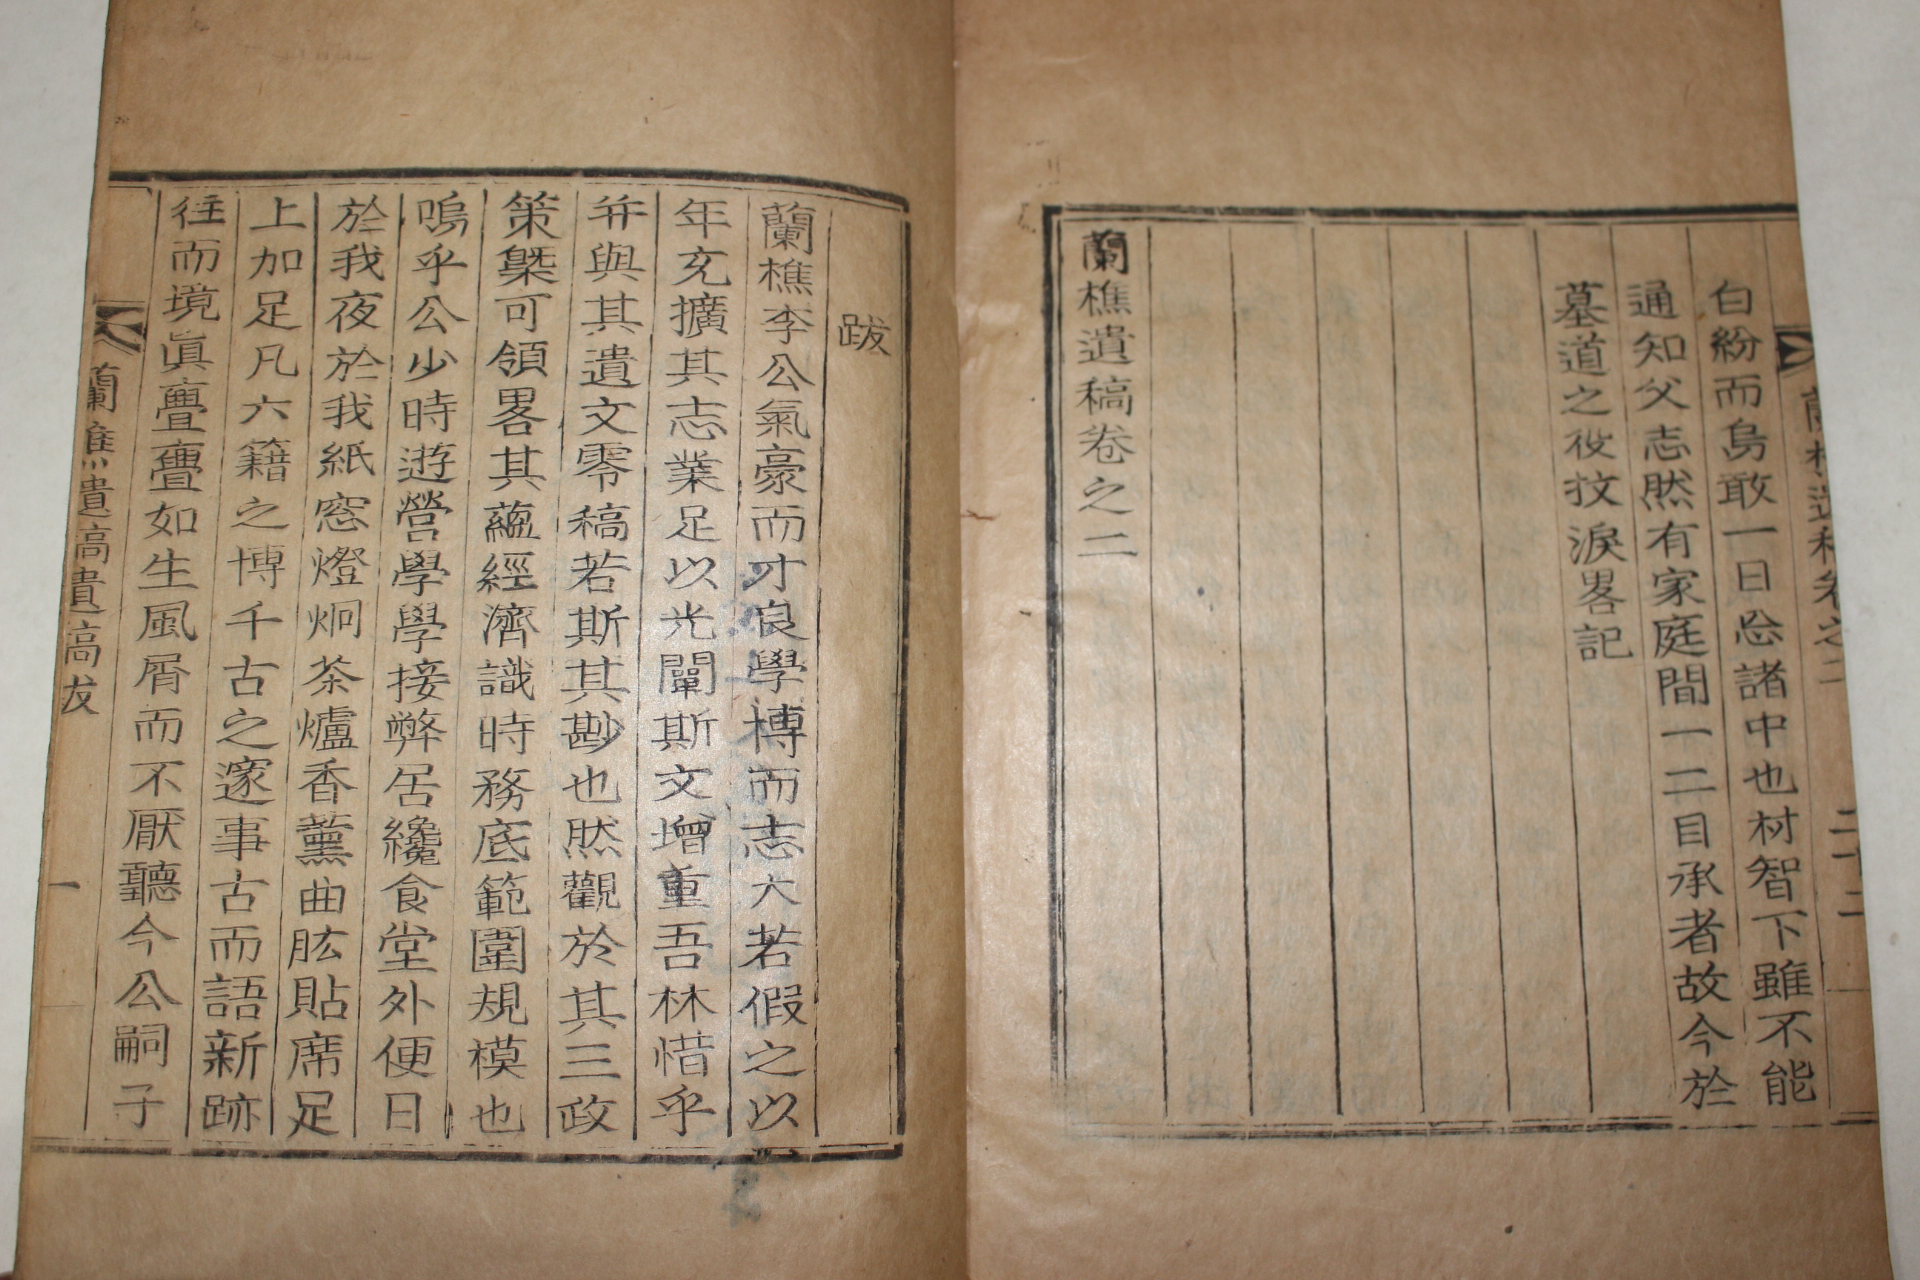 蘭樵遺稿卷之二
二十二
白紛而烏敢一日忘諸中也材智下雖不能
通知父志然有家庭間一二目承者故今於
墓道之役抆淚畧記
蘭樵遺稿卷之二
跋
蘭樵李公氣豪而才良學博而志大若假之以
年充擴其志業足以光闡斯文增重吾林惜乎
幷與其遺文零稿若斯其尠也然觀於其三政
策槩可領畧其蘊經濟識時務底範圍規模也
嗚乎公少時遊營學學接弊居纔食堂外便日
於我夜於我紙窓燈炯茶爐香薰曲肱貼席足
上加足凡六籍之博千古之邃事古而語新跡
往而境眞亹亹如生風屑而不厭聽今公嗣子
蘭樵遺稿遺稿跋
一